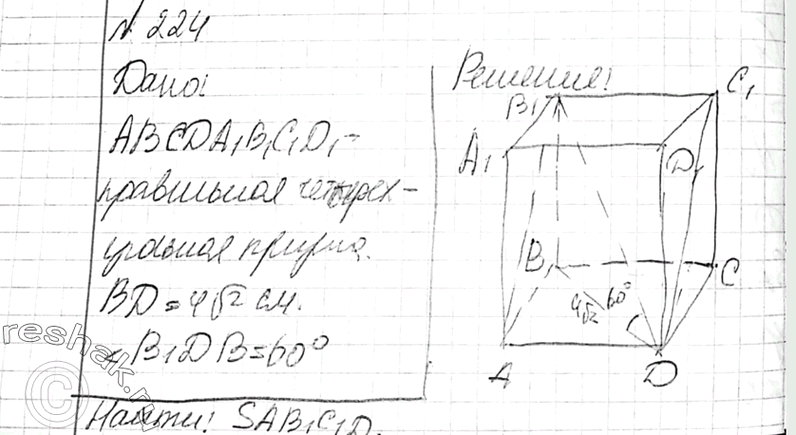 № 224
Дано:
ABCDA₁B₁C₁D₁ -
правильная четырех-
угольная призма.
BD = 4√2 см.
∠B₁DB = 60°
Найти: SAB₁C₁D.
Решение:
B₁
C₁
A₁
D₁
B
C
4√2
60°
A
D
reshak.ru
©